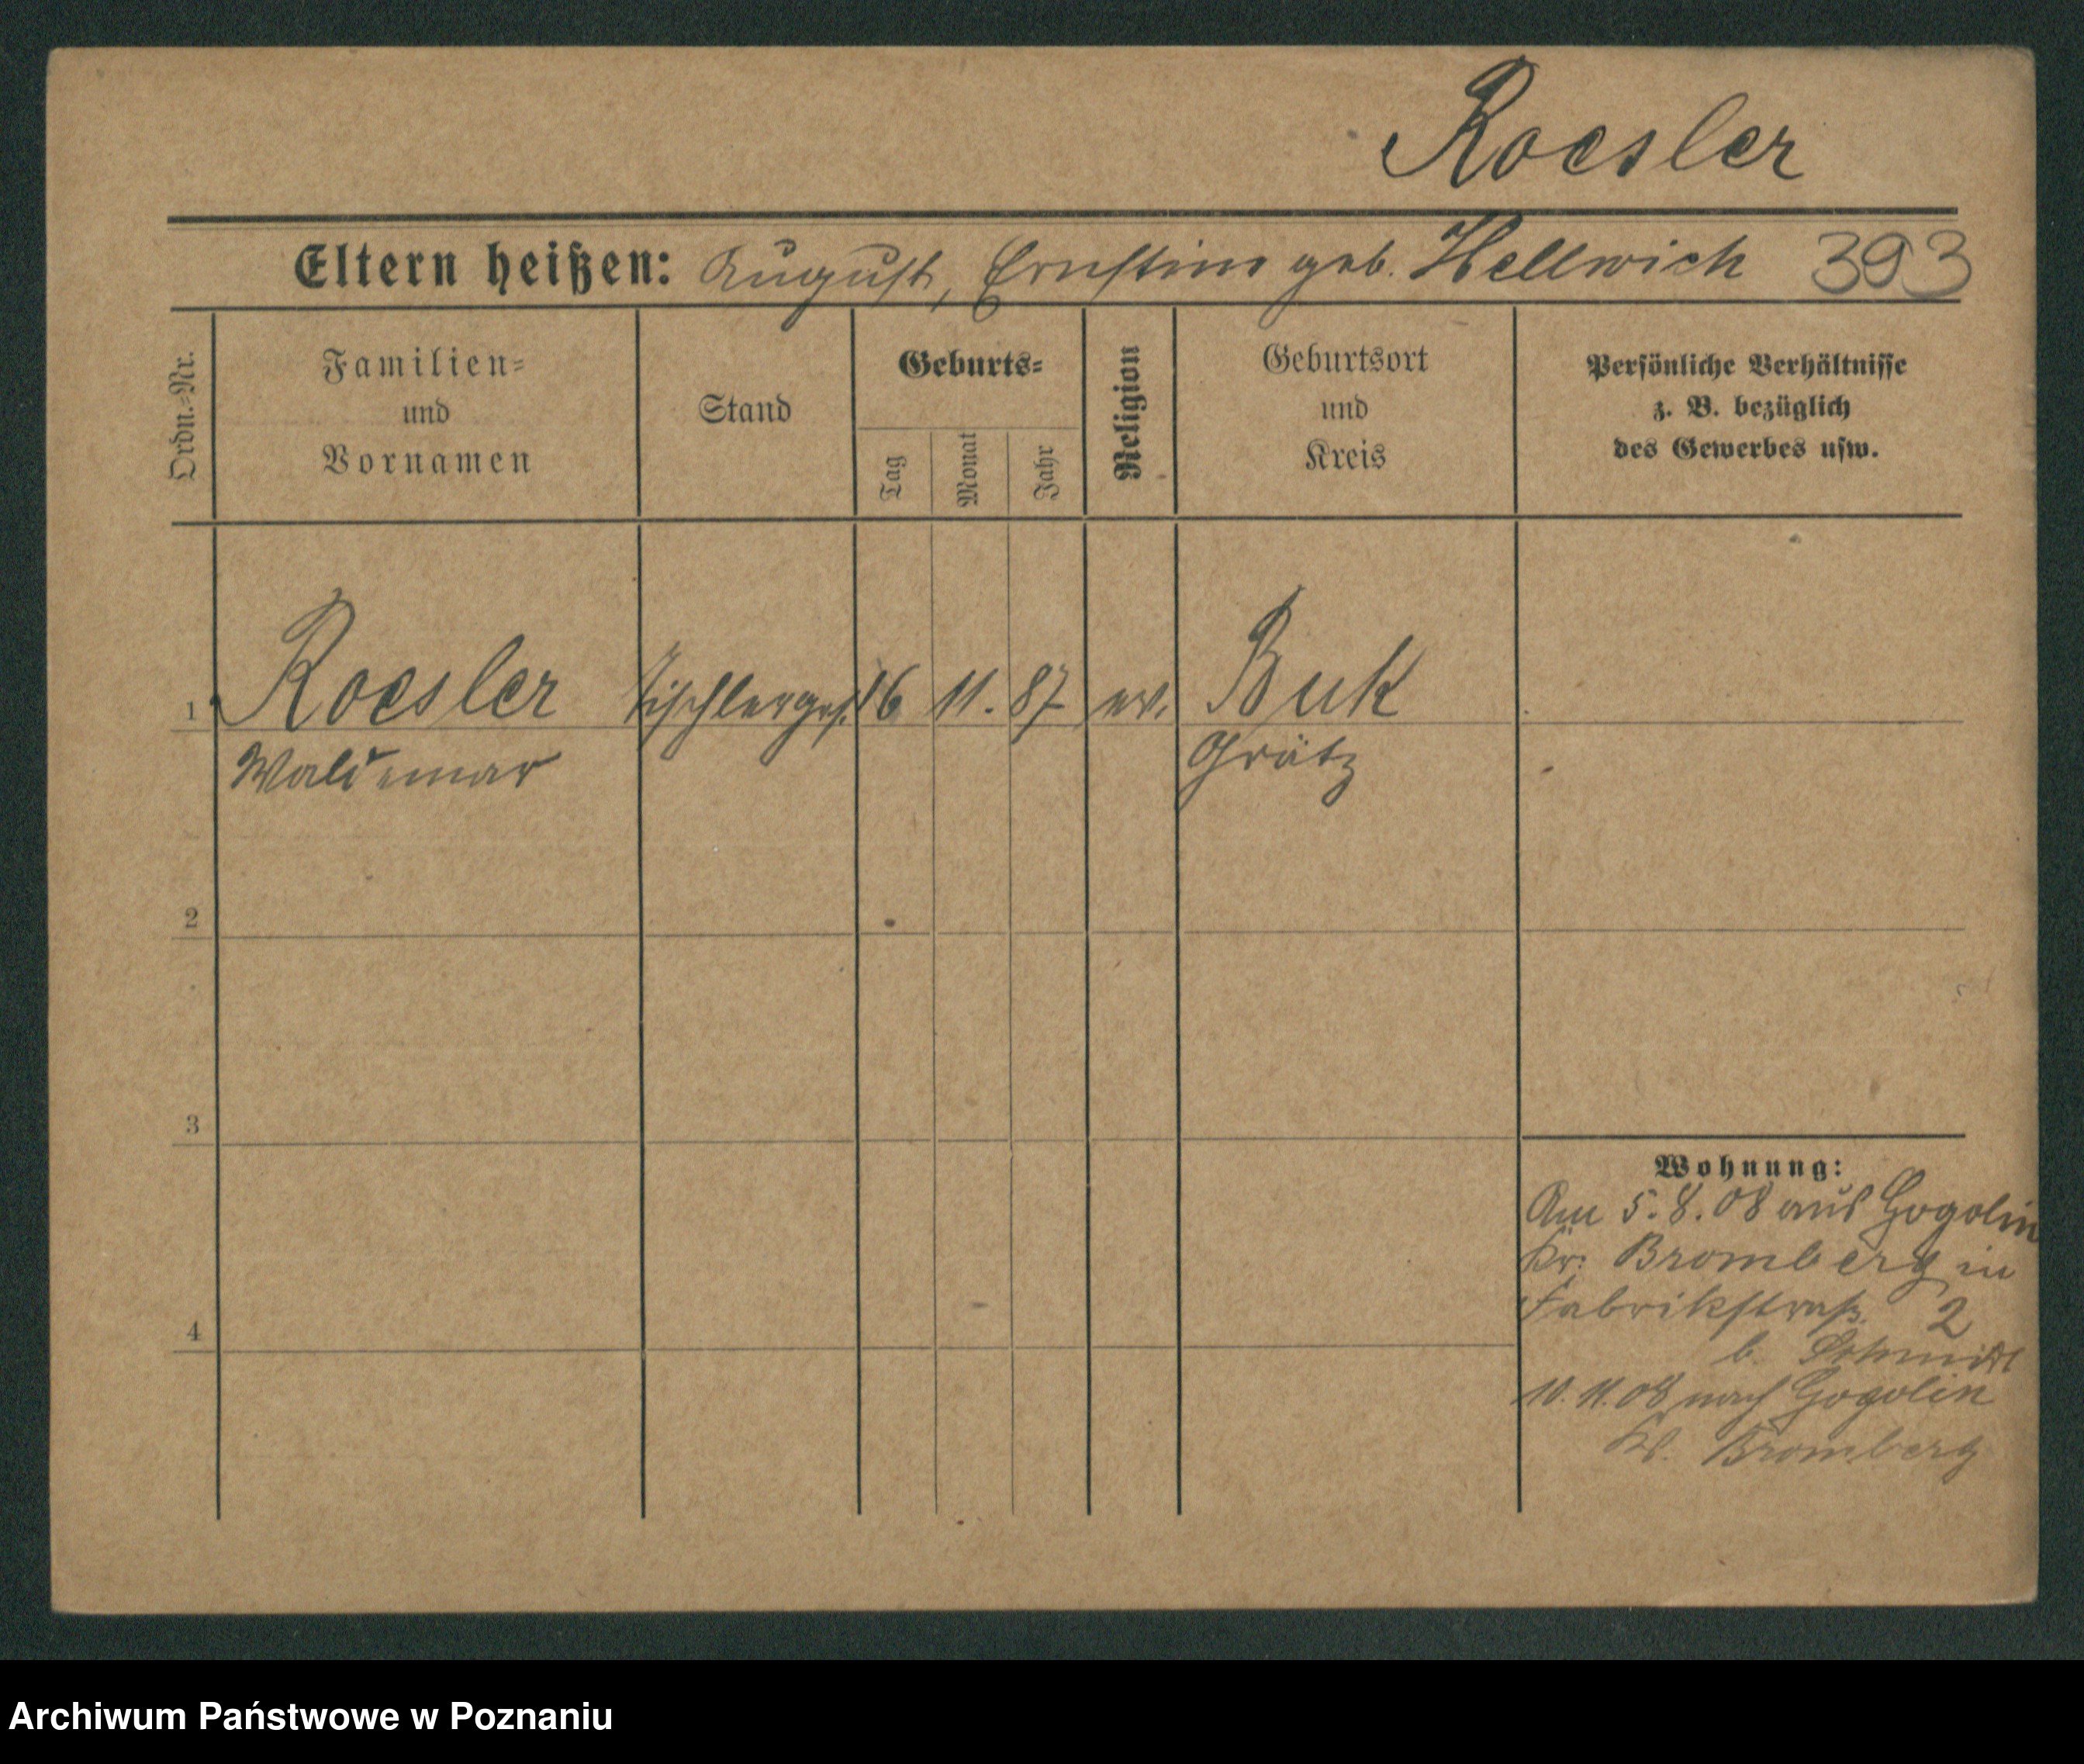 Roesler
Eltern heißen: August, Ernstine geb. Hellwich 393
Ordn.-Nr.
Familien-
und
Vornamen
Stand
Geburts-
Tag
Monat
Jahr
Religion
Geburtsort
und
Kreis
Persönliche Verhältnisse
z. B. bezüglich
des Gewerbes usw.
1 Roesler Tischlerges. 16 11. 87 ev. Buk
Waldemar Grätz
2
3
4
Wohnung:
Am 5.8.08 aus Gogolin
Kr. Bromberg in
Fabrikstraß. 2
b. Schmidt
10.11.08 nach Gogolin
Kr. Bromberg
Archiwum Państwowe w Poznaniu